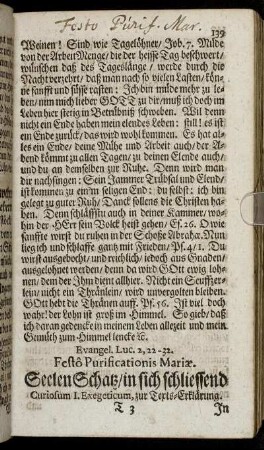 Festo Purif. Mar.
139
Weinen! Sind wie Tagelöhner/ Job. 7. Müde
von der Arbeit Menge/ die der heisse Tag beschwert/
wünschen daß des Tages länge/ werde durch die
Nacht verzehrt/ daß man nach so vielen Lasten/ köne
ne sanfft und süsse rasten: Ich bin müde mehr zu le-
ben/ nim mich lieber GOTT zu dir/ muß ich doch im
Leben hier stetig in Betrübniß schweben. Wil denn
nicht ein Ende haben mein elendes Leben: still! es ist
ein Ende zurück/ das wird wohl kommen. Es hat al-
les ein Ende/ deine Mühe und Arbeit auch/ der A-
bend kömmt zu allen Tagen/ zu deinen Elende auch/
und du an demselben zur Ruhe. Denn wird man
dir nachsingen: Sein Jammer Trübsal und Elend/
ist kommen zu ein'm seligen End: du selbst: ich bin
gelegt zu guter Ruh/ Danck sollens die Christen ha-
ben. Denn schläffstu auch in deiner Kammer/ wo-
hin der HErr sein Volck heist gehen/ Es. 26. O wie
sanffte wirst du ruhen in der Schoße Abrahæ. Nun
liege ich und schlaffe gantz mit Frieden/ Ps. 4/1. Du
wirst ausgebocht/ und reichlich/ iedoch aus Gnaden/
ausgelohnet werden/ denn da wird GOtt ewig loh-
nen/ dem der Ihm dient allhier. Nicht ein Seuffzer-
lein/ nicht ein Thränlein/ wird unvergolten bleiben.
GOtt hebt die Thränen auff. Ps. 56. Ist viel doch
wahr! der Lohn ist groß im Himmel. So gieb/ daß
ich daran gedencke in meinem Leben allezeit und mein
Gemüth zum Himmel lencke ꝛc.
Evangel. Luc. 2, 22-32.
Festô Purificationis Mariæ.
Seelen Schatz/ in sich schliessend
Curiosum I. Exegeticum, zur Texts/ Erklärung.
T 3
In